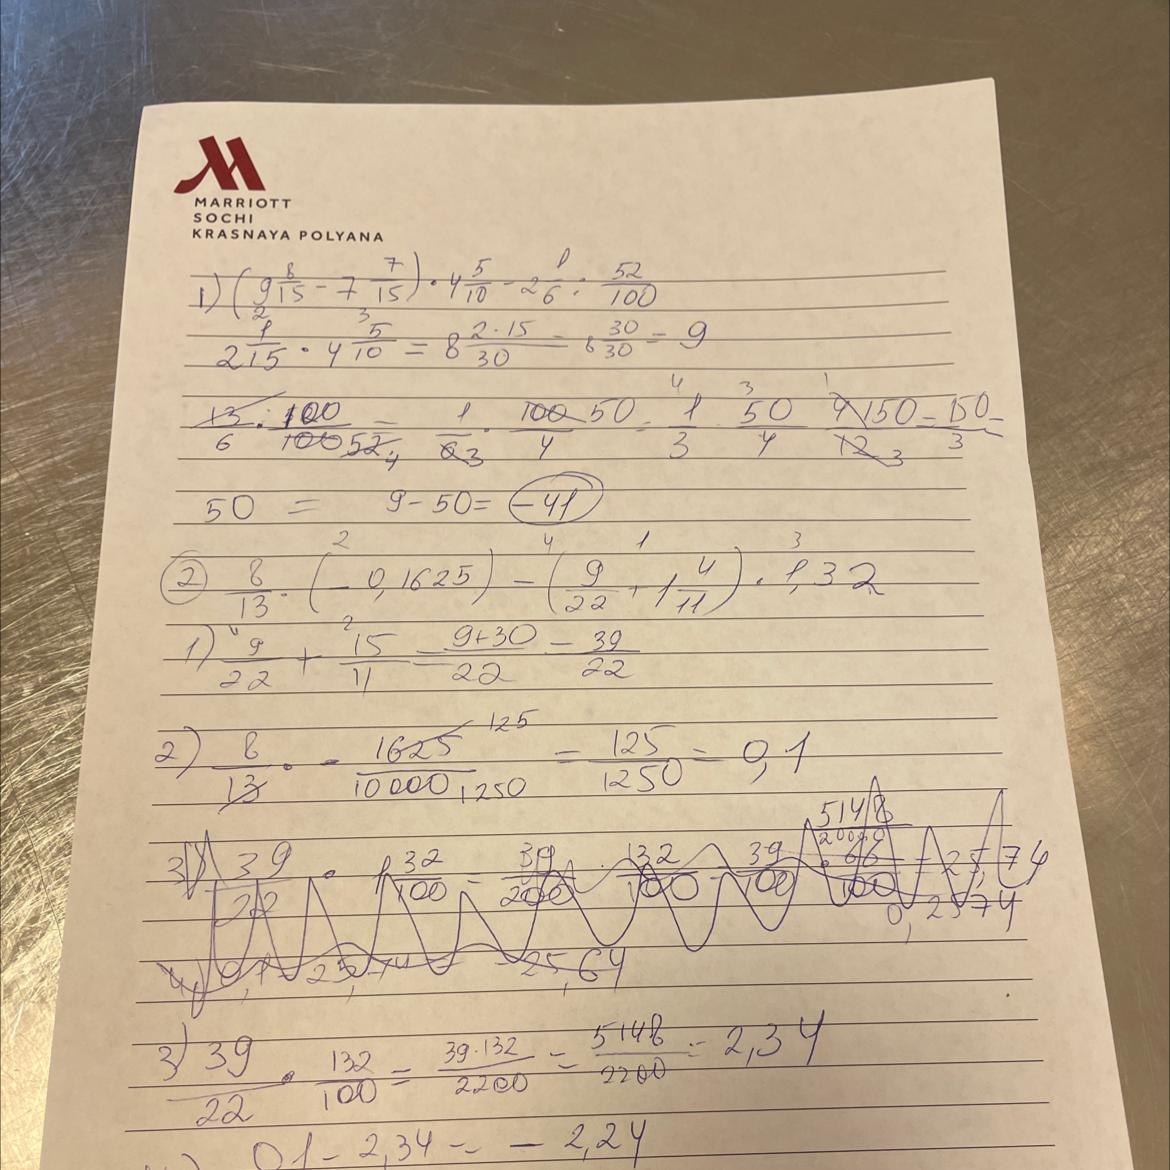 MARRIOTT
SOCHI
KRASNAYA POLYANA
1) (9 8/15 - 7 7/15) · 4 5/10 - 2 1/6 : 52/100
2 1/15 · 4 5/10 = 8 2·15/30 = 8 30/30 = 9
13/6 : 100/52 4 = 1/6 3 · 100 50/4 = 1/3 50/4 150/12 3 = 150/3 =
50 = 9 - 50 = -41
2) 8/13 · (-0,1625) - (9/22 + 1 4/11) · 1,32
1) 9/22 + 15/11 = 9+30/22 = 39/22
2) 8/13 · - 1625 125/10000 1250 = 125/1250 = 0,1
3) 39/22 · 1 32/100 = 39/200 · 132/100 = 39/100 · 66/100 5148 = 25,74
0,2574
4) 0,1 - 25,74 = -25,64
3) 39/22 · 132/100 = 39·132/2200 = 5148/2200 = 2,34
0,1 - 2,34 = - 2,24